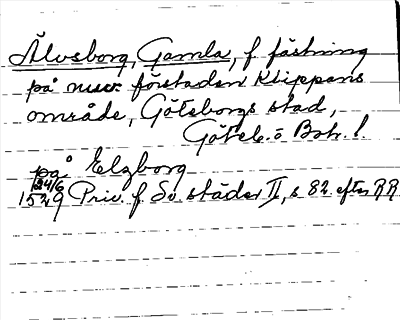 Älvsborg, Gamla, f fästning
på nuv. förstaden Klippans
område, Göteborgs stad,
Göteb. o Boh. l.
på Elzborg
24/6
1529 Priv. f Sv städer II, s 82 efter RR